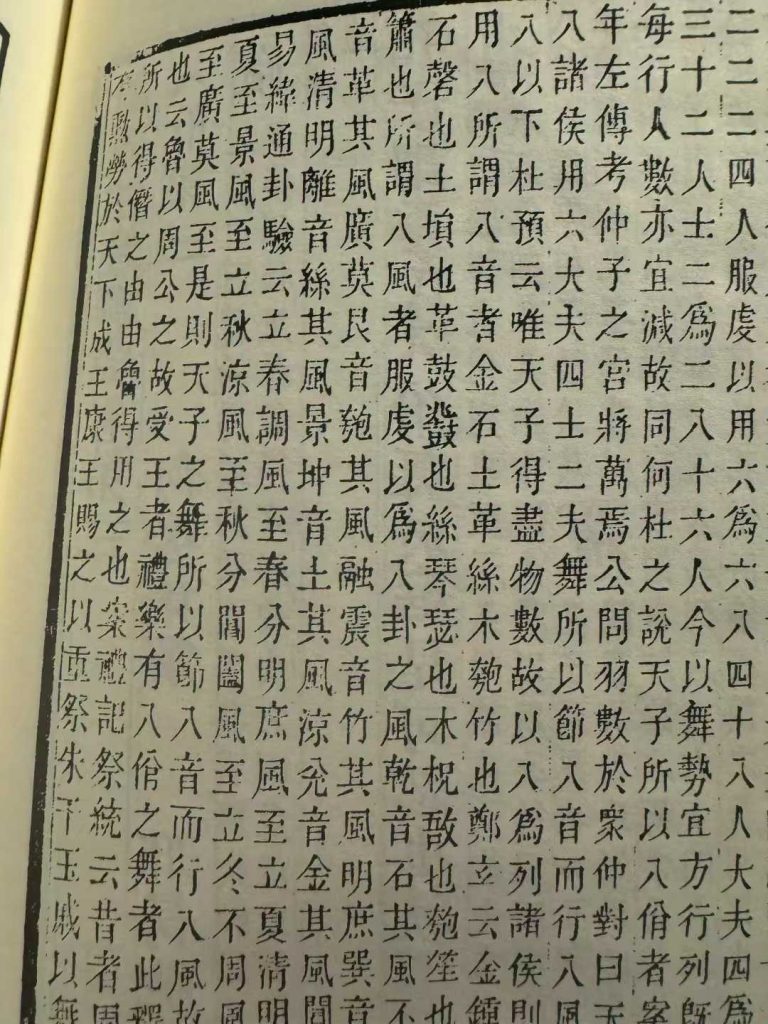 二二二四人服虔以用六爲六八四十八人大夫四爲
三十二人士二爲二八十六人今以舞勢宜方行列既
每行人數亦宜減故同何杜之說天子所以八佾者案
年左傳考仲子之宮將萬焉公問羽數於衆仲對曰天
八諸侯用六大夫四士二夫舞所以節八音而行八風
八以下杜預云唯天子得盡物數故以八爲列諸侯則
用八所謂八音者金石土革絲木匏竹也鄭玄云金鍾
石磬也土塤也革鼓鼗也絲琴瑟也木柷敔也匏笙也
簫也所謂八風者服虔以爲八卦之風乾音石其風不
音革其風廣莫艮音匏其風融震音竹其風明庶巽音
風清明離音絲其風景坤音土其風涼兌音金其風閶
易緯通卦驗云立春調風至春分明庶風至立夏清明
夏至景風至立秋涼風至秋分閶闔風至立冬不周風
至廣莫風至是則天子之舞所以節八音而行八風故
也云魯以周公之故受王者禮樂有八佾之舞者此釋
所以得僭之由由魯得用之也案禮記祭統云昔者周
有勳勞於天下成王康王賜之以重祭朱干玉戚以舞